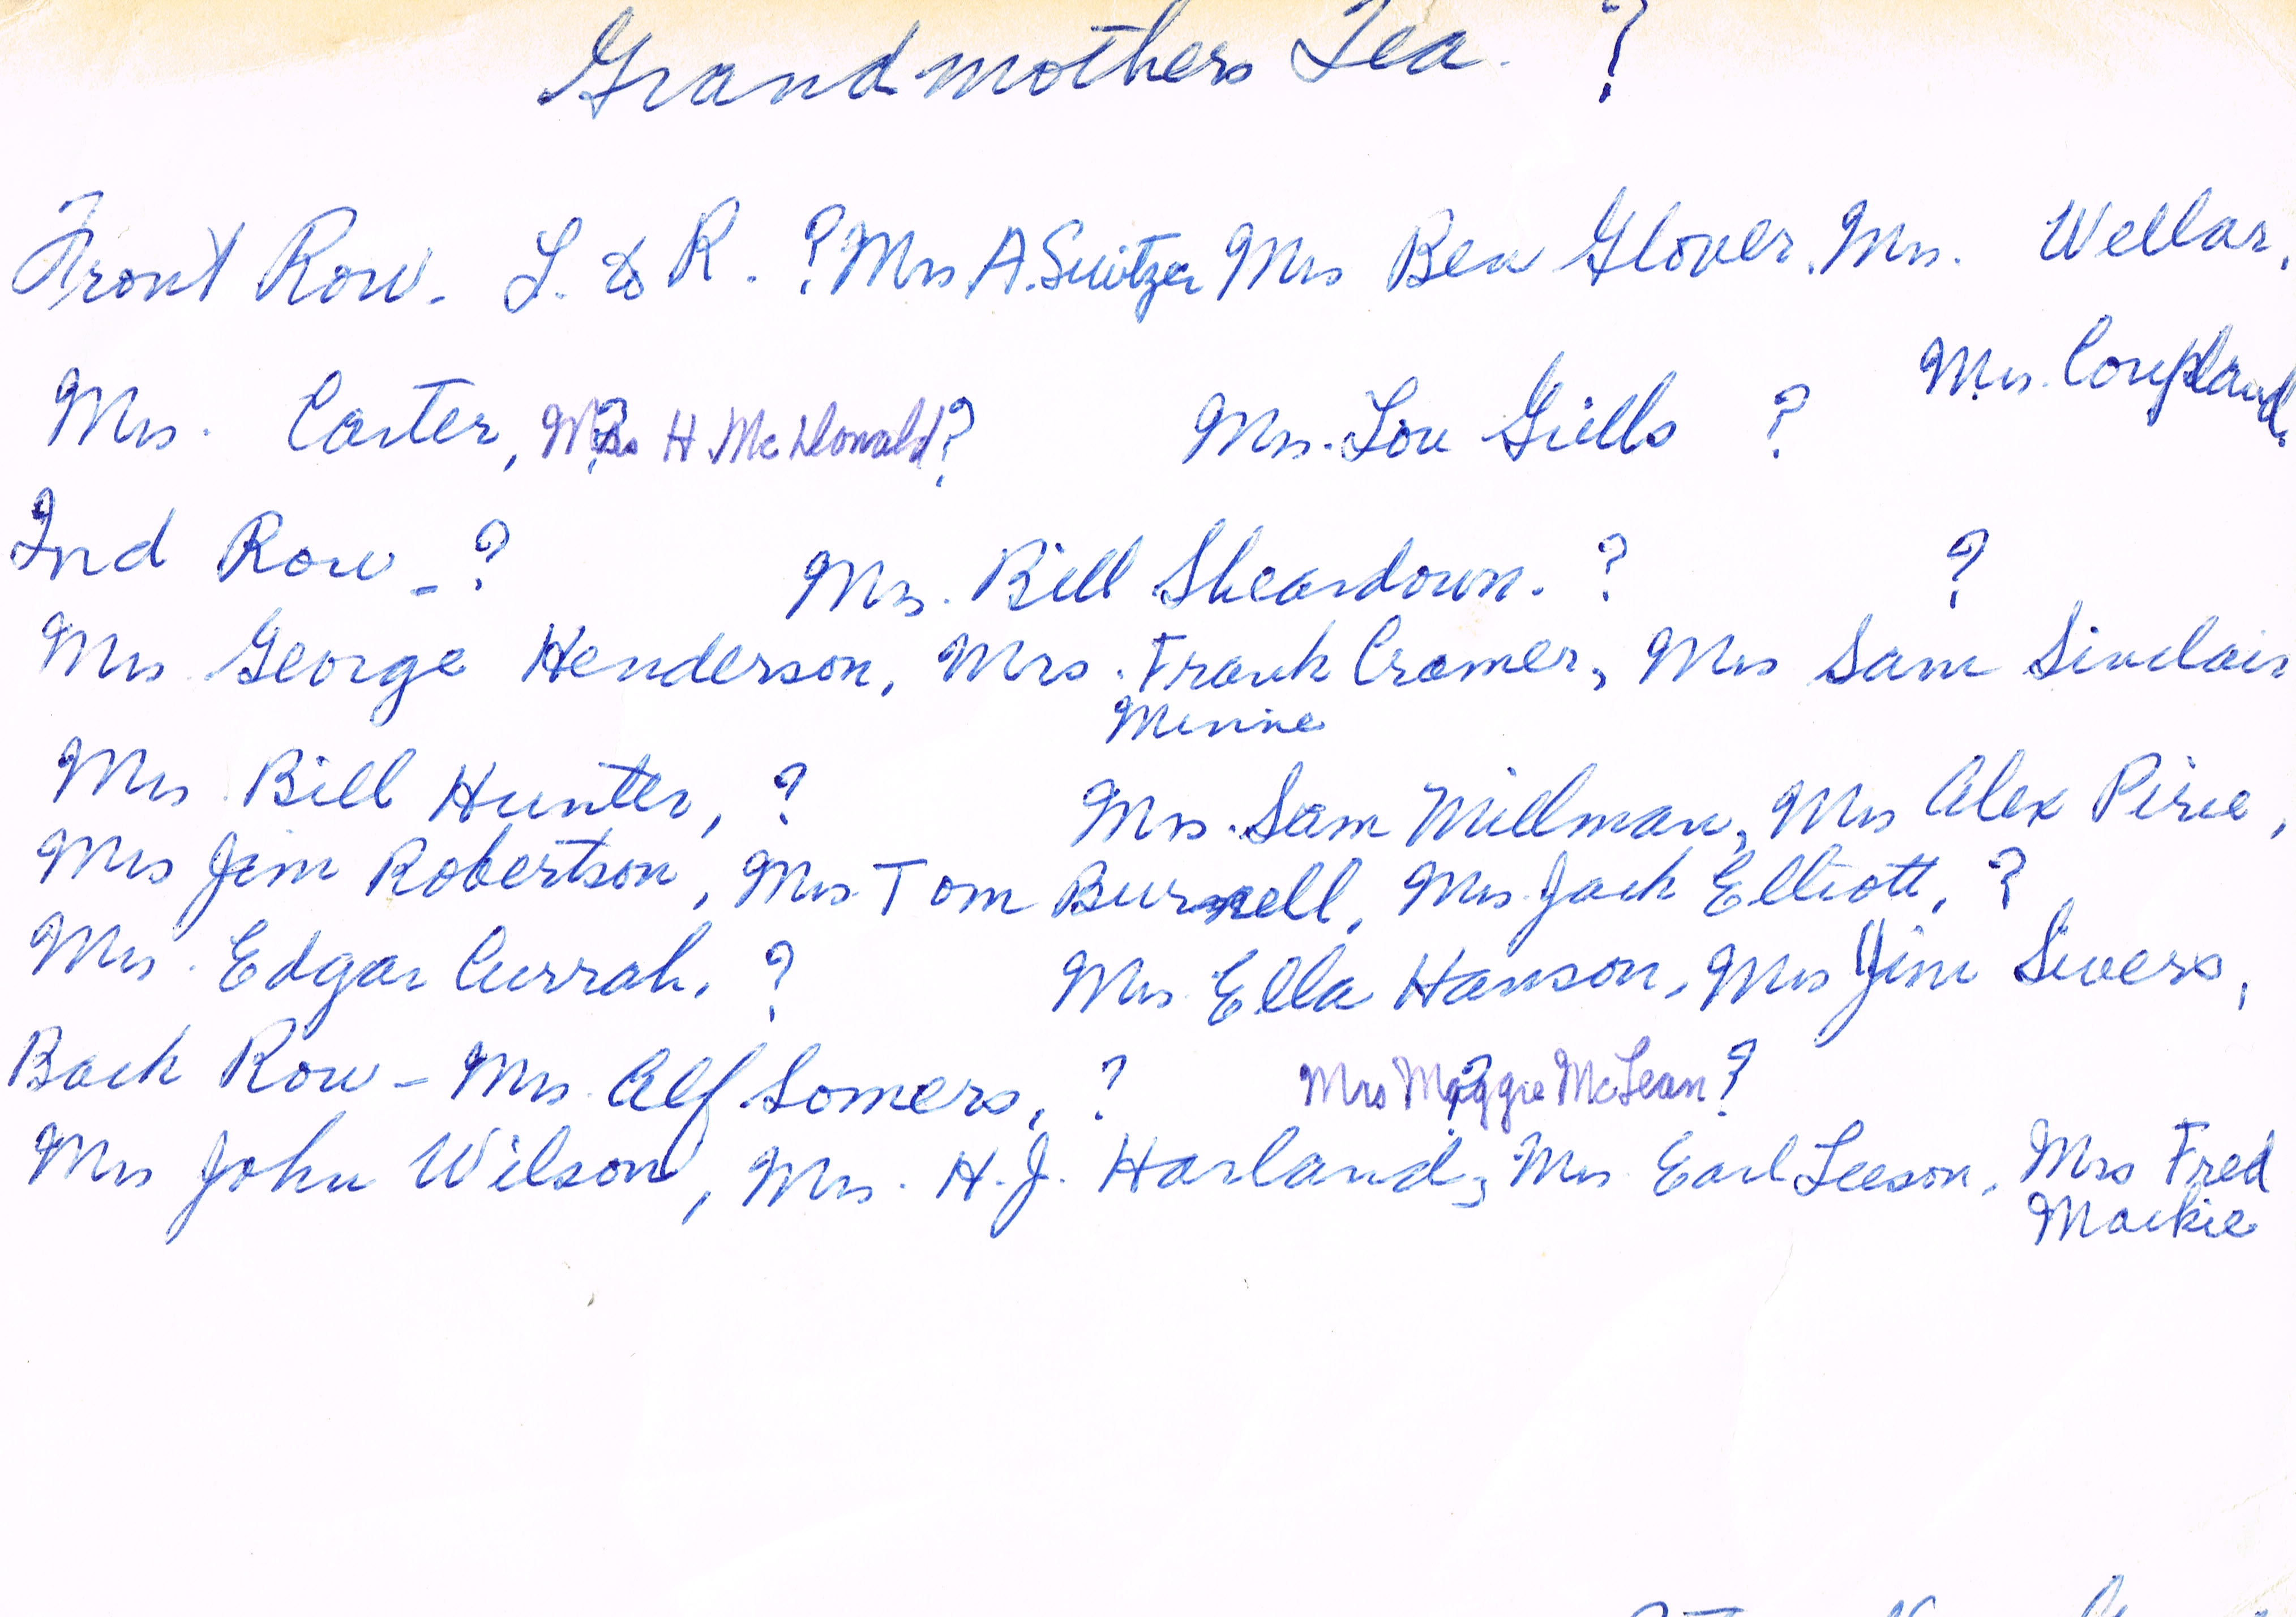 Grandmothers Tea. ?
Front Row. L. to R. ? Mrs A. Switzer Mrs Ben Glover. Mrs. Wellar.
Mrs. Carter, ? Mrs H. McDonald ? Mrs. Lou Gills ? Mrs. Coupland.
2nd Row - ? Mrs. Bill Sheardown. ? ?
Mrs George Henderson, Mrs. Frank Cramer, Mrs Sam Sinclair
Minnie
Mrs Bill Hunter, ? Mrs. Sam Millman, Mrs Alex Pirie,
Mrs Jim Robertson, Mrs Tom Burnell, Mrs Jack Elliott, ?
Mrs. Edgar Currah, ? Mrs Ella Hanson, Mrs Jim Sivers,
Back Row - Mrs. Alf Somers, ? Mrs Maggie McLean ?
Mrs John Wilson, Mrs. H. J. Harland, Mrs Earl Leeson, Mrs Fred
Mackie